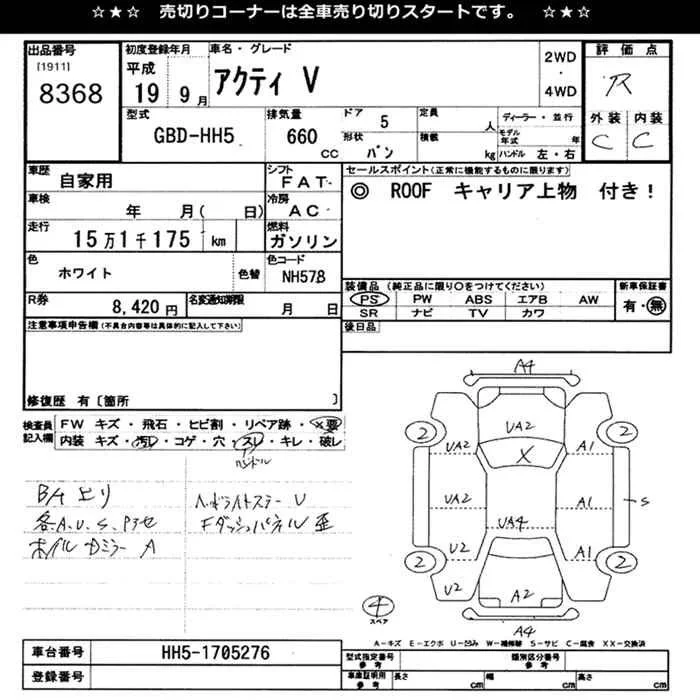 ☆★☆ 売切りコーナーは全車売り切りスタートです。 ☆★☆
出品番号
[1911]
8368
初度登録年月
平成
19 9月
車名・グレード
アクティ V
2WD
・
4WD
評価点
R
外装 内装
C C
型式
GBD-HH5
排気量
660
CC
ドア 5
形状 バン
定員 人
積載 kg
ディーラー・並行
モデル年式 年
ハンドル 左・右
車歴
自家用
シフト
FAT
車検
年 月( 日)
冷房
AC
走行
15万1千175 km
燃料
ガソリン
色
ホワイト
色替
色コード
NH578
R券
8,420円
名変通知期限
月 日
セールスポイント(正常に機能するものに限ります)
◎ ROOF キャリア上物 付き!
装備品 (純正品に限り○をつけてください)
PS PW ABS エアB AW
SR ナビ TV カワ
新車保証書
有・無
後日品
注意事項申告欄(不具合内容等は具体的に記入して下さい)
修復歴 有〔箇所 〕
検査員記入欄
FW キズ・飛石・ヒビ割・リペア跡・×要
内装 キズ・汚れ・コゲ・穴・スレ・キレ・破レ
ハンドル
各A.U.S.
ホイル Dミラー A
ヘッドライトステー U
Fダッシュパネル 歪
A4
UA2
2 2
UA2 X A1
UA2 A1 S
UA4
U2 A1
2 2
U2 A2
4
スペア
A4
A-キズ E-エクボ U-凹み W-補修跡 S-サビ C-腐食 XX-交換済
車台番号
HH5-1705276
登録番号
型式指定番号
参考
類別区分番号
参考
車庫証明用
参考
長さ cm
幅 cm
高さ cm